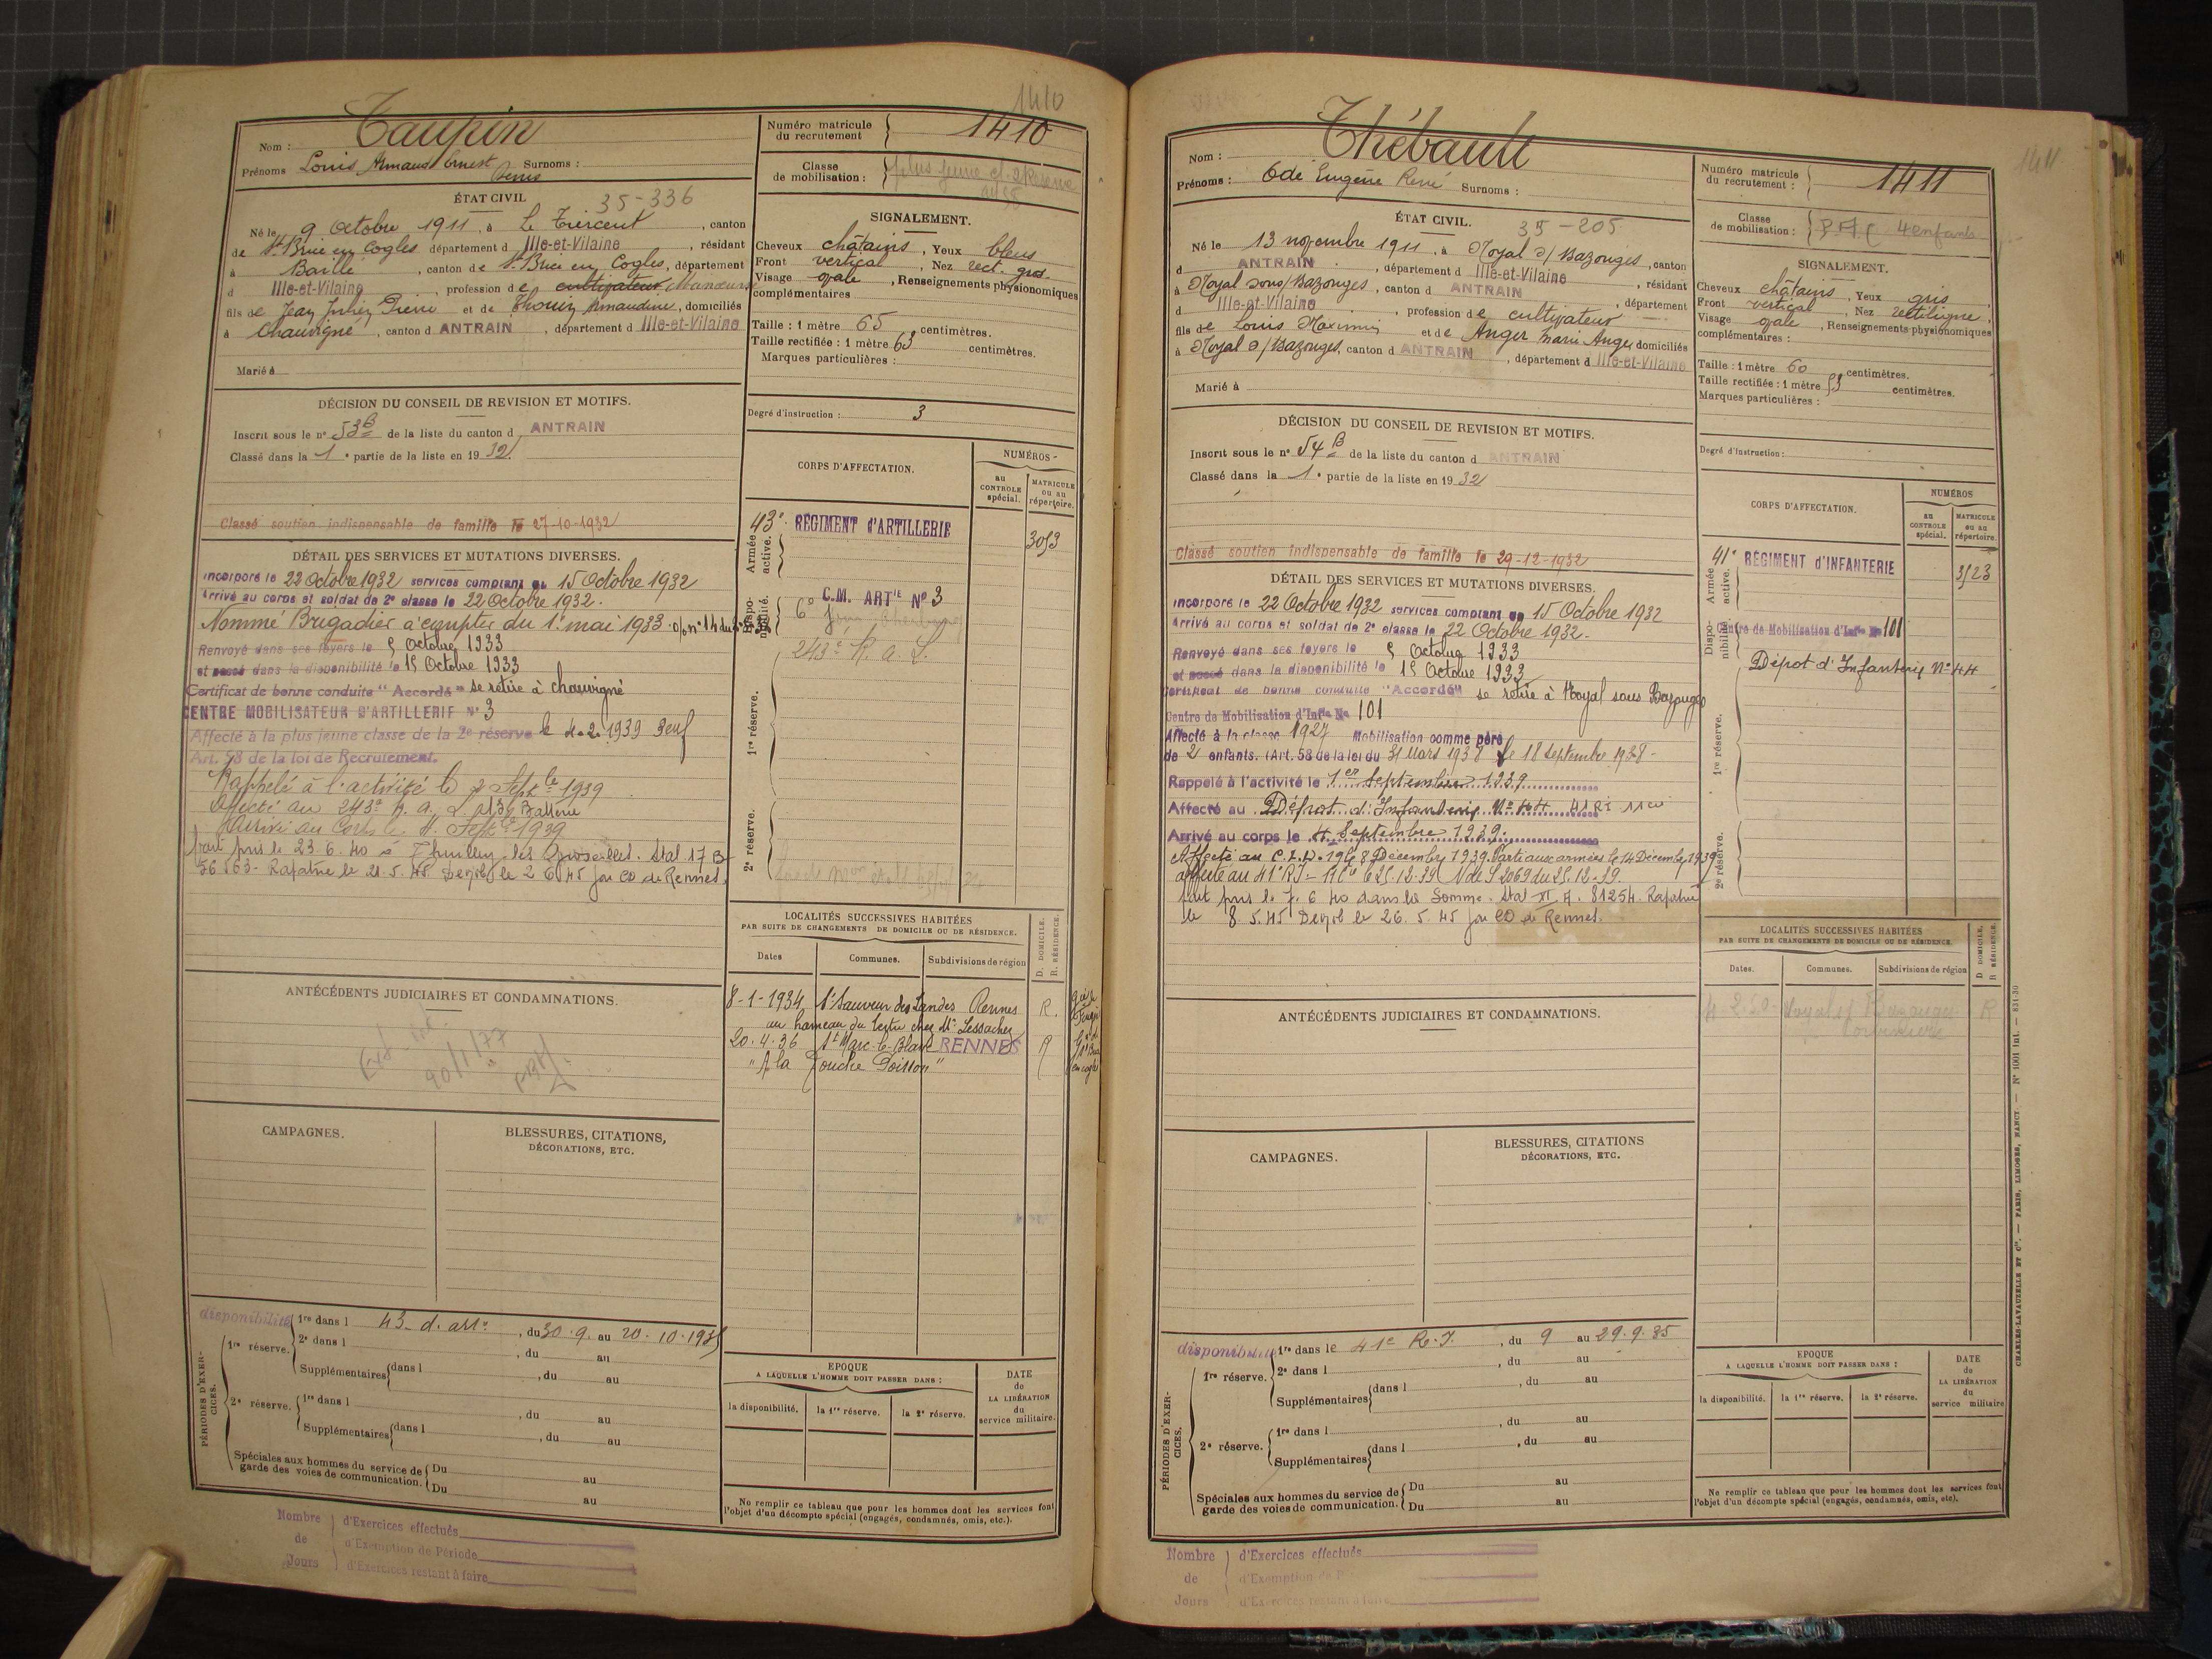 1410
Nom : Taupin
Prénoms Louis Armand Ernest Denis Surnoms :
Numéro matricule du recrutement 1410
Classe de mobilisation : plus jeune cl. 2 Réserve
ÉTAT CIVIL 35-336
Né le 9 Octobre 1911, à Le Tiercent, canton
de St Brice en Cogles département d Ille-et-Vilaine, résidant
à Baillé, canton de St Brice en Cogles, département
d Ille-et-Vilaine, profession de cultivateur Manœuvre
fils de Jean Julien Pierre et de Thouin Armandine, domiciliés
à Chauvigné, canton d ANTRAIN, département d Ille-et-Vilaine
Marié à
SIGNALEMENT.
Cheveux châtains, Yeux bleus
Front vertical, Nez rect. gros.
Visage ovale, Renseignements physionomiques
complémentaires
Taille : 1 mètre 65 centimètres.
Taille rectifiée : 1 mètre 63 centimètres.
Marques particulières :
Degré d'instruction : 3
DÉCISION DU CONSEIL DE REVISION ET MOTIFS.
Inscrit sous le n° 53 B de la liste du canton d ANTRAIN
Classé dans la 1e partie de la liste en 1932
Classé soutien indispensable de famille le 27-10-1932
DÉTAIL DES SERVICES ET MUTATIONS DIVERSES.
Incorporé le 22 Octobre 1932 services comptant du 15 Octobre 1932
Arrivé au corps et soldat de 2e classe le 22 Octobre 1932.
Nommé Brigadier à compter du 1er mai 1933
Renvoyé dans ses foyers le 5 Octobre 1933
et passé dans la disponibilité le 15 Octobre 1933
Certificat de bonne conduite "Accordé" se retire à Chauvigné
CENTRE MOBILISATEUR D'ARTILLERIE N° 3
Affecté à la plus jeune classe de la 2e réserve le 4.2.1939
Art. 58 de la loi de Recrutement.
Rappelé à l'activité le 2 Septbre 1939
Affecté au 243e R.A.L. 13e Batterie
Arrivé au Corps le 4 Septbre 1939
Fait pris le 23.6.40 à Thuilley les Groseilles. Stal 17 B
56.563 - Rapatrié le 21.5.45 Demob le 2 6 45 par CD de Rennes.
CORPS D'AFFECTATION.
NUMÉROS
au CONTROLE spécial.
MATRICULE ou au répertoire.
Armée active.
43e RÉGIMENT D'ARTILLERIE 3053
Disponibilité.
C.M. ARTIE N° 3
243e R.A.L.
1re réserve.
2e réserve.
LOCALITÉS SUCCESSIVES HABITÉES
PAR SUITE DE CHANGEMENTS DE DOMICILE OU DE RÉSIDENCE.
Dates Communes. Subdivisions de région D. DOMICILE. R. RÉSIDENCE.
8-1-1934 St Sauveur des Landes Rennes R.
au hameau du tertre chez Mr Lessacher
20.4.36 St Marc-le-Blanc RENNES R
"A la Touche Poisson"
ANTÉCÉDENTS JUDICIAIRES ET CONDAMNATIONS.
CAMPAGNES.
BLESSURES, CITATIONS,
DÉCORATIONS, ETC.
PÉRIODES D'EXERCICES.
disponibilité 1re dans l 43 d'arte, du 30.9. au 20.10.1935
1re réserve. 2e dans l , du au
Supplémentaires dans l , du au
2e réserve. 1re dans l , du au
Supplémentaires dans l , du au
Spéciales aux hommes du service de garde des voies de communication. Du au
Du au
EPOQUE
A LAQUELLE L'HOMME DOIT PASSER DANS :
la disponibilité. la 1re réserve. la 2e réserve.
DATE de LA LIBÉRATION du service militaire.
Ne remplir ce tableau que pour les hommes dont les services font
l'objet d'un décompte spécial (engagés, condamnés, omis, etc.).
Nombre de Jours
d'Exercices effectués
d'Exemption de Période
d'Exercices restant à faire
1411
Nom : Thébault
Prénoms : Odé Eugène René Surnoms :
Numéro matricule du recrutement : 1411
Classe de mobilisation : 4 enfants
ÉTAT CIVIL. 35-205
Né le 13 novembre 1911, à Noyal s/ Bazouges, canton
d ANTRAIN, département d Ille-et-Vilaine, résidant
à Noyal sous/Bazouges, canton d ANTRAIN, département
d Ille-et-Vilaine, profession de cultivateur
fils de Louis Maximin et de Anger Marie Ange, domiciliés
à Noyal s/Bazouges, canton d ANTRAIN, département d Ille-et-Vilaine
Marié à
SIGNALEMENT.
Cheveux châtains, Yeux gris
Front vertical, Nez rectiligne.
Visage ovale, Renseignements physionomiques
complémentaires :
Taille : 1 mètre 60 centimètres.
Taille rectifiée : 1 mètre 53 centimètres.
Marques particulières :
Degré d'instruction :
DÉCISION DU CONSEIL DE REVISION ET MOTIFS.
Inscrit sous le n° 54 B de la liste du canton d ANTRAIN
Classé dans la 1e partie de la liste en 1932
Classé soutien indispensable de famille le 29-12-1932
DÉTAIL DES SERVICES ET MUTATIONS DIVERSES.
Incorporé le 22 Octobre 1932 services comptant du 15 Octobre 1932
Arrivé au corps et soldat de 2e classe le 22 Octobre 1932.
Renvoyé dans ses foyers le 5 Octobre 1933
et passé dans la disponibilité le 15 Octobre 1933
Certificat de bonne conduite "Accordé" se retire à Noyal sous Bazouges
Centre de Mobilisation d'Infie No 101
Affecté à la classe 1927 Mobilisation comme père
de 2 enfants. (Art. 58 de la loi du 31 Mars 1928 le 18 Septembre 1938-
Rappelé à l'activité le 1er Septembre 1939
Affecté au Dépôt d'Infanterie N° 44 41 RI 11 Cie
Arrivé au corps le 4 Septembre 1939.
Affecté au C.I.D. 19 le 8 Décembre 1939. Parti aux armées le 14 Décembre 1939
affecté au 41e RI - le 25.12.39 N de S 2069 du 25.12.39.
Fait pris le 7.6 40 dans la Somme. Stal XI A. 81254. Rapatrié
le 8.5.45 Demob le 26.5.45 par CD de Rennes.
CORPS D'AFFECTATION.
NUMÉROS
au CONTROLE spécial.
MATRICULE ou au répertoire.
Armée active.
41e RÉGIMENT D'INFANTERIE 3123
Disponibilité.
Centre de Mobilisation d'Infie No 101
Dépôt d'Infanterie N° 44
1re réserve.
2e réserve.
LOCALITÉS SUCCESSIVES HABITÉES
PAR SUITE DE CHANGEMENTS DE DOMICILE OU DE RÉSIDENCE.
Dates. Communes. Subdivisions de région D DOMICILE, R RÉSIDENCE.
Noyal s/ Bazouges R
ANTÉCÉDENTS JUDICIAIRES ET CONDAMNATIONS.
CAMPAGNES.
BLESSURES, CITATIONS
DÉCORATIONS, ETC.
PÉRIODES D'EXERCICES.
disponibilité 1re dans le 41e R.I., du 9 au 29.9.35
1re réserve. 2e dans l , du au
Supplémentaires dans l , du au
2e réserve. 1re dans l , du au
Supplémentaires dans l , du au
Spéciales aux hommes du service de garde des voies de communication. Du au
Du au
EPOQUE
A LAQUELLE L'HOMME DOIT PASSER DANS :
la disponibilité. la 1re réserve. la 2e réserve.
DATE de LA LIBÉRATION du service militaire
Ne remplir ce tableau que pour les hommes dont les services font
l'objet d'un décompte spécial (engagés, condamnés, omis, etc).
CHARLES-LAVAUZELLE ET Cie. — PARIS, LIMOGES, NANCY. — N° 1001 int — 831-30
Nombre de Jours
d'Exercices effectués
d'Exemption de
d'Exercices restant à faire